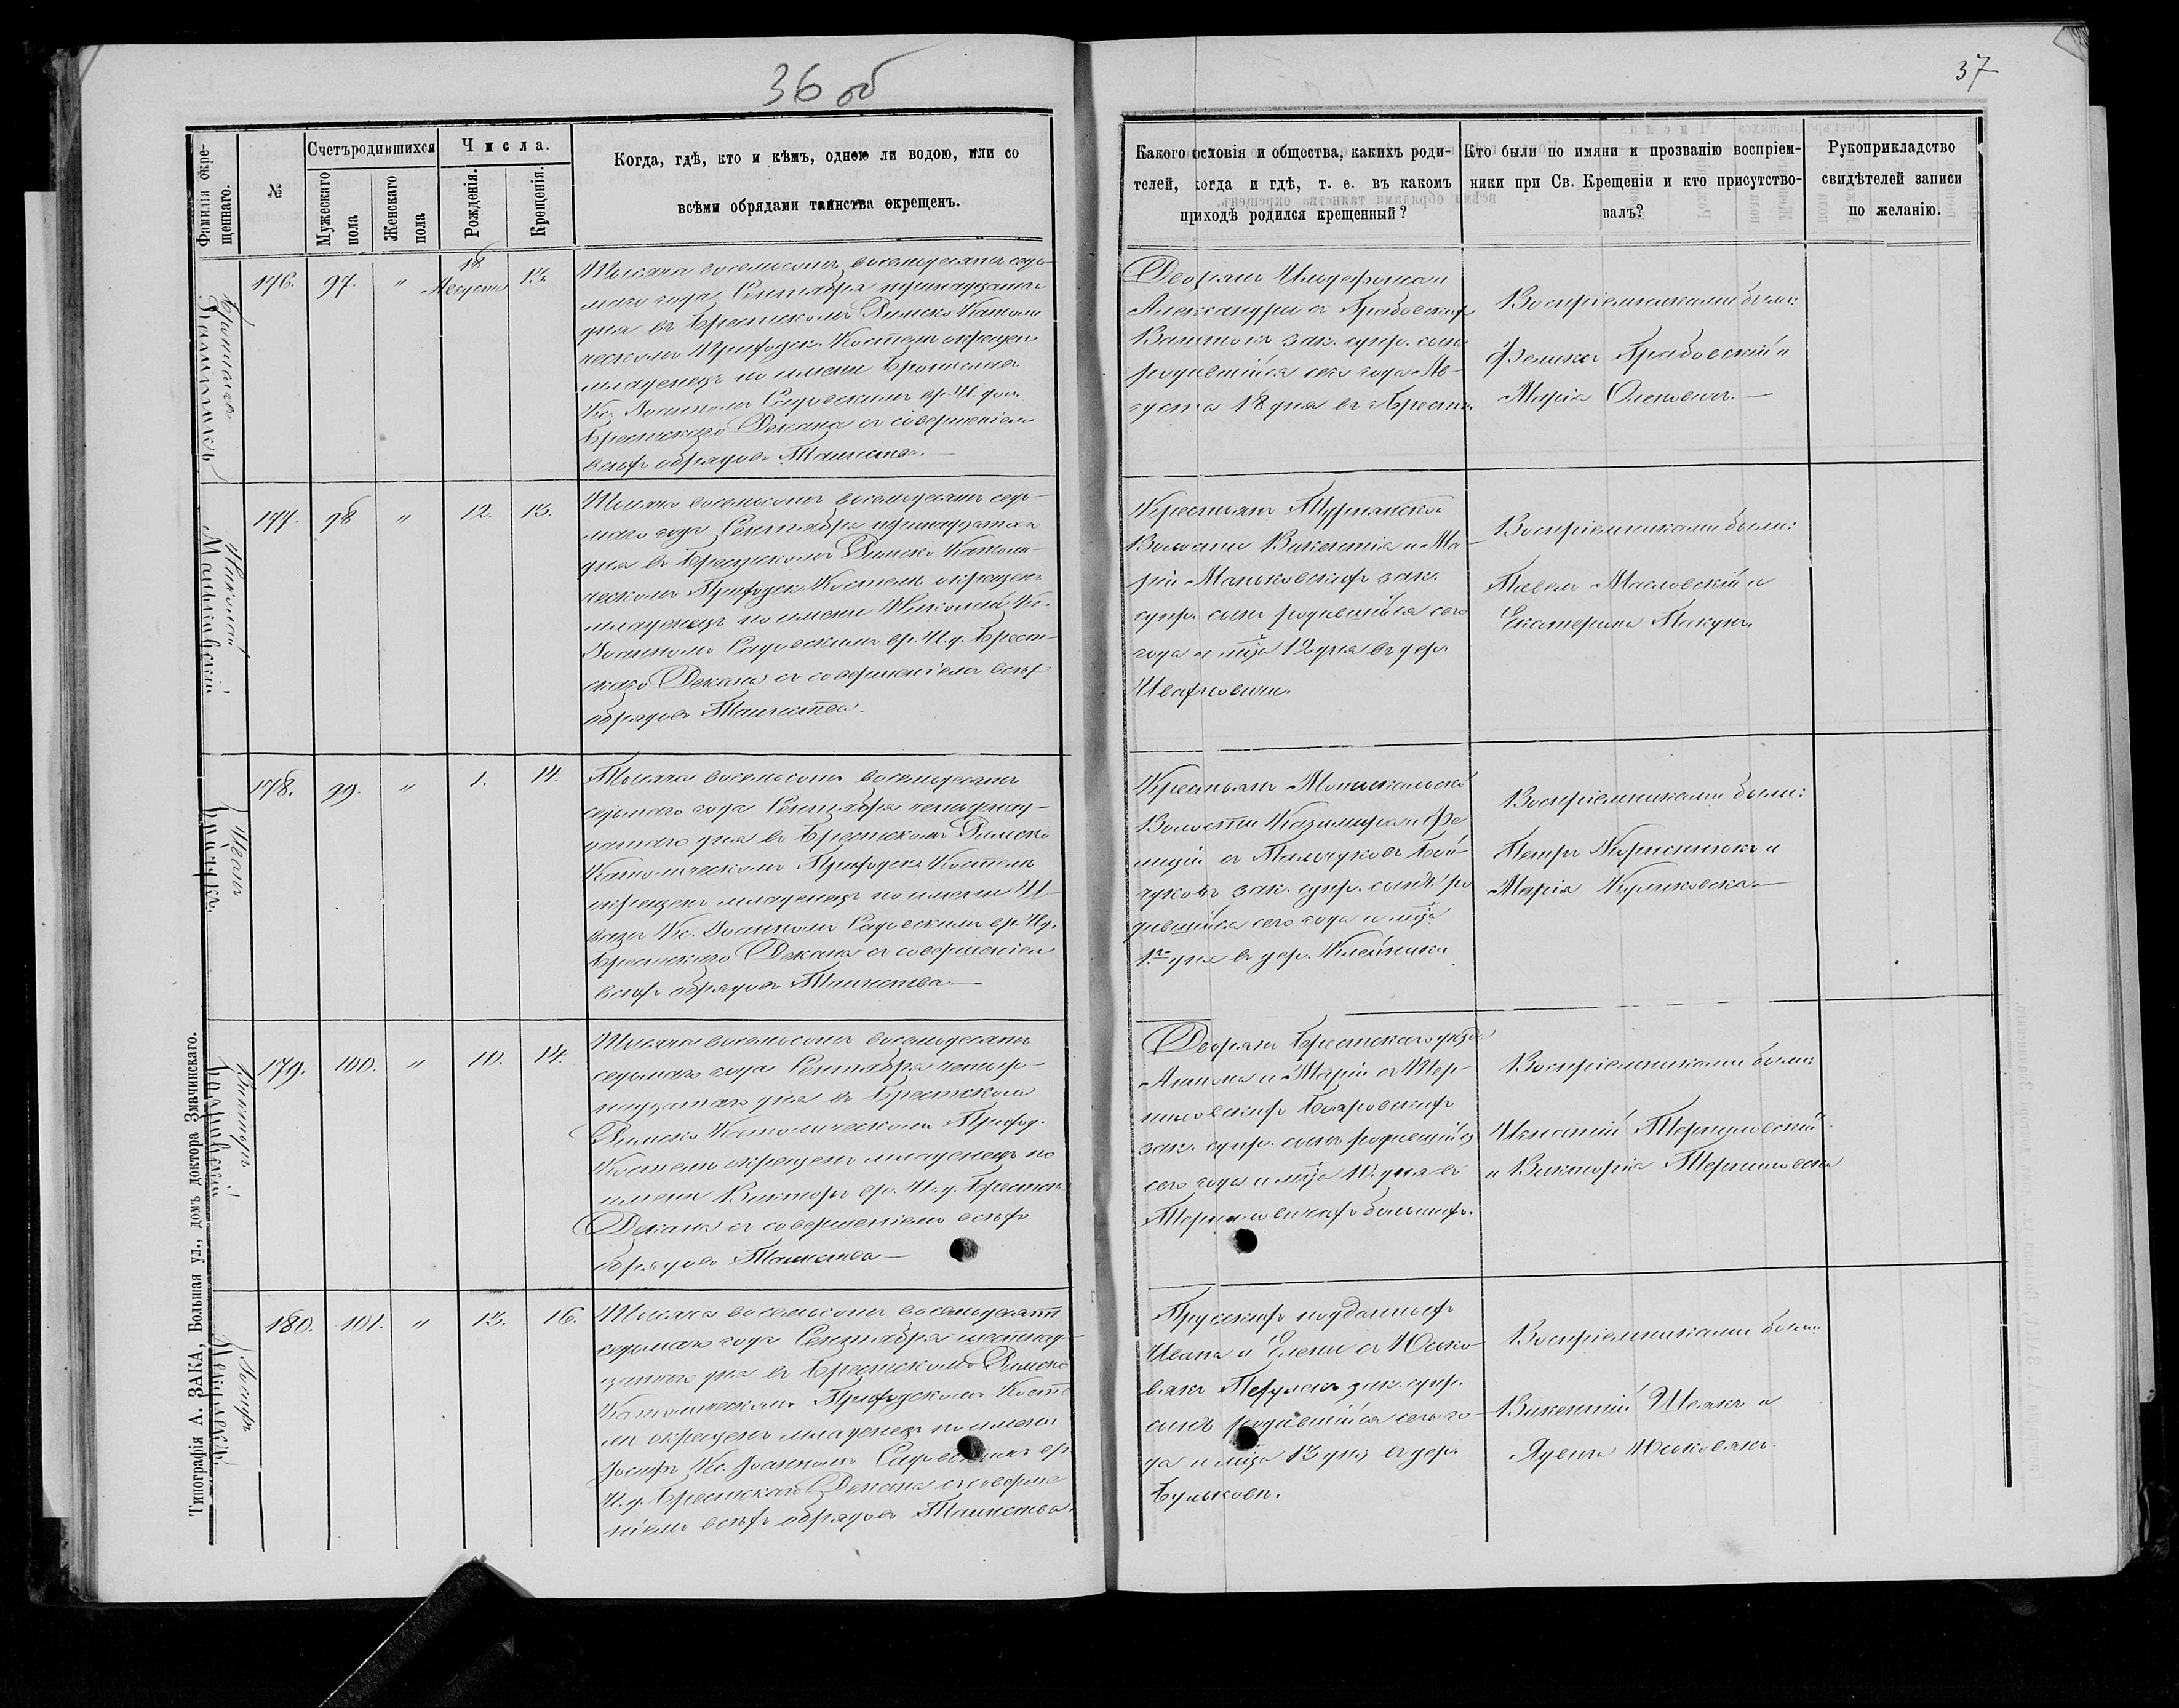 36 об
37
Фамилія окре-
щеннаго.
№
Счетъ родившихся
Мужескаго
пола
Женскаго
пола
Числа.
Рожденія.
Крещенія.
Когда, гдѣ, кто и кѣмъ, одною ли водою, или со
всѣми обрядами таинства окрещенъ.
Какого сословія и общества, какихъ роди-
телей, когда и гдѣ, т. е. въ какомъ
приходѣ родился крещенный?
Кто были по имяни и прозванію воспріем-
ники при Св. Крещеніи и кто присутство-
валъ?
Рукоприкладство
свидѣтелей записи
по желанію.
Брониславъ
176. 97. " 18 Августа 13.
Тысяча восемьсотъ восемьдесятъ седь-
маго года Сентября тринадцатаго
дня въ Брестскомъ Римско Католи
ческомъ Приходск. Костелѣ окрещенъ
младенецъ по имени Брониславъ
Кс. Іоанномъ Садовскимъ вр. И. дол.
Брестскаго Декана съ совершеніемъ
всѣхъ обрядовъ Таинства.
Дворянъ Ильдефонса и
Александры съ Грабовскихъ
зак. супр. сынъ
родившійся сего года Ав-
густа 18 дня въ Брестѣ.
Воспріемниками были:
Феликсъ Грабовскій и
Марія
Николай
Маньковскій
177. 98 " 12. 13.
Тысяча восемьсотъ восемьдесятъ седь-
маго года Сентября тринадцатаго
дня въ Брестскомъ Римско Католи-
ческомъ Приходск. Костелѣ окрещенъ
младенецъ по имени Николай Кс.
Іоанномъ Садовскимъ вр. И. д. Брест-
скаго Декана съ совершеніемъ всѣхъ
обрядовъ Таинства.
Крестьянъ Турнянской
Волости Викентія и Ма-
ріи Маньковскихъ зак.
супр. сынъ родившійся сего
года и мца 12 дня въ дер.
Воспріемниками были:
Павелъ Масловскій и
Екатерина
Иванъ
Байчукъ.
178. 99. " 1. 14.
Тысяча восемьсотъ восемьдесятъ
седьмаго года Сентября четырнад-
цатаго дня въ Брестскомъ Римско
Католическомъ Приходск. Костелѣ
окрещенъ младенецъ по имени И-
ванъ Кс. Іоанномъ Садовскимъ вр. И. д.
Брестскаго Декана съ совершеніемъ
всѣхъ обрядовъ Таинства.
Крестьянъ Мотыкальской
Волости Казимира и Фе
лиціи съ Бай-
чуковъ зак. супр. сынъ ро
дившійся сего года и мца
1го дня въ дер. Клейники
Воспріемниками были:
Петръ и
Марія Куликовская
Викторъ
179. 100. " 10. 14.
Тысяча восемьсотъ восемьдесятъ
седьмаго года Сентября четыр-
надцатаго дня въ Брестскомъ
Римско Католическомъ Приход.
Костелѣ окрещенъ младенецъ по
имени Викторъ вр. И. д. Брестск.
Декана съ совершеніемъ всѣхъ
обрядовъ Таинства
Дворянъ Брестскаго уѣзда
Антона и Маріи съ Тер-
миловскихъ
зак. супр. сынъ родившійся
сего года и мца 10 дня въ
большихъ.
Воспріемниками были:
Игнатій
и Викторія
Іосифъ
180. 101. " 13. 16.
Тысяча восемьсотъ восемьдесятъ
седьмаго года Сентября шестнад-
цатаго дня въ Брестскомъ Римско
Католическомъ Приходскомъ Косте
лѣ окрещенъ младенецъ по имени
Іосифъ Кс. Іоанномъ Садовскимъ вр
И. д. Брестскаго Декана съ соверше
ніемъ всѣхъ обрядовъ Таинства.
Прусскихъ подданныхъ
Ивана и Елены съ
зак. супр.
сынъ родившійся сего го-
да и мца 13 дня въ дер.
Бульковъ.
Воспріемниками были:
Викентій и
Типографія А. ЗАКА, Большая ул., домъ доктора Значинскаго.